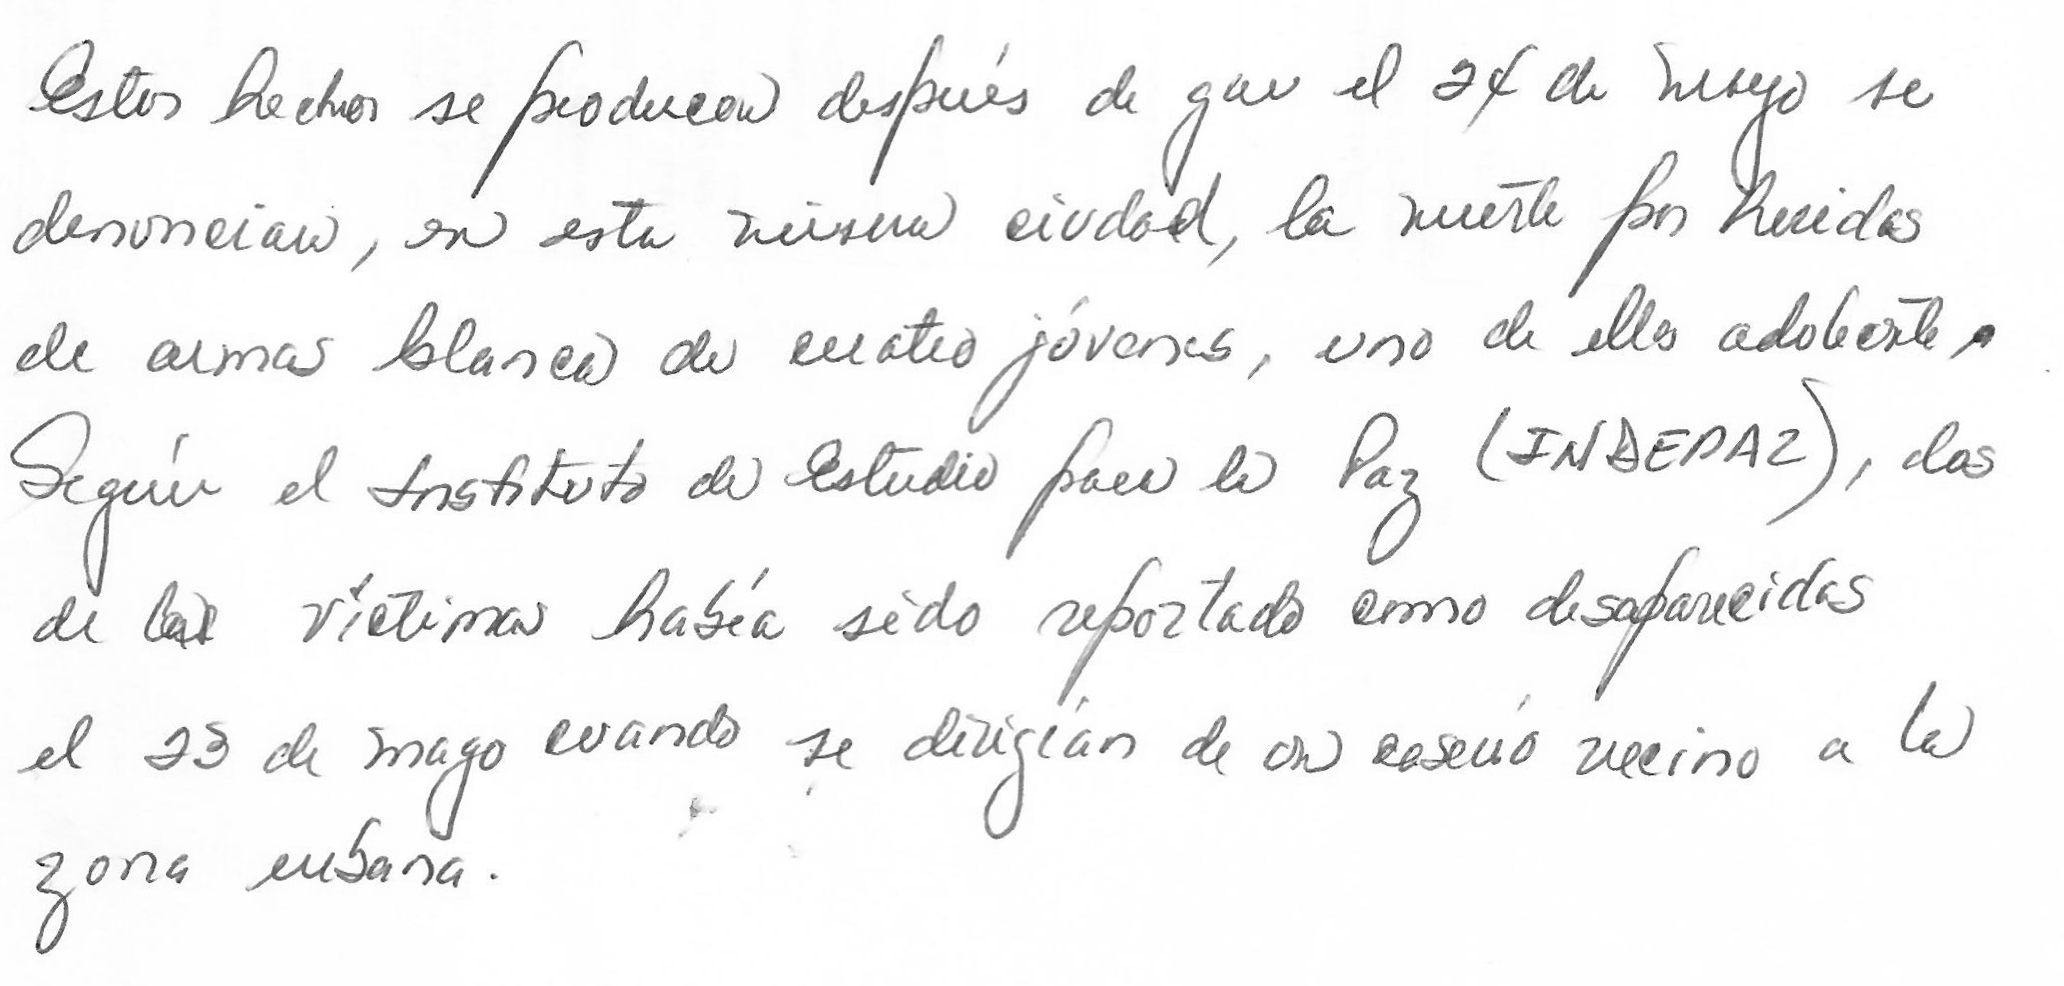 Estos hechos se producen después de que el 24 de mayo se
denunciara, en esta misma ciudad, la muerte por heridas
de armas blanca de cuatro jóvenes, uno de ellos adolecente.
Según el Instituto de Estudio para la Paz (INDEPAZ), dos
de las víctimas había sido reportado como desaparecidas
el 23 de mayo cuando se dirigían de un caserío vecino a la
zona urbana.